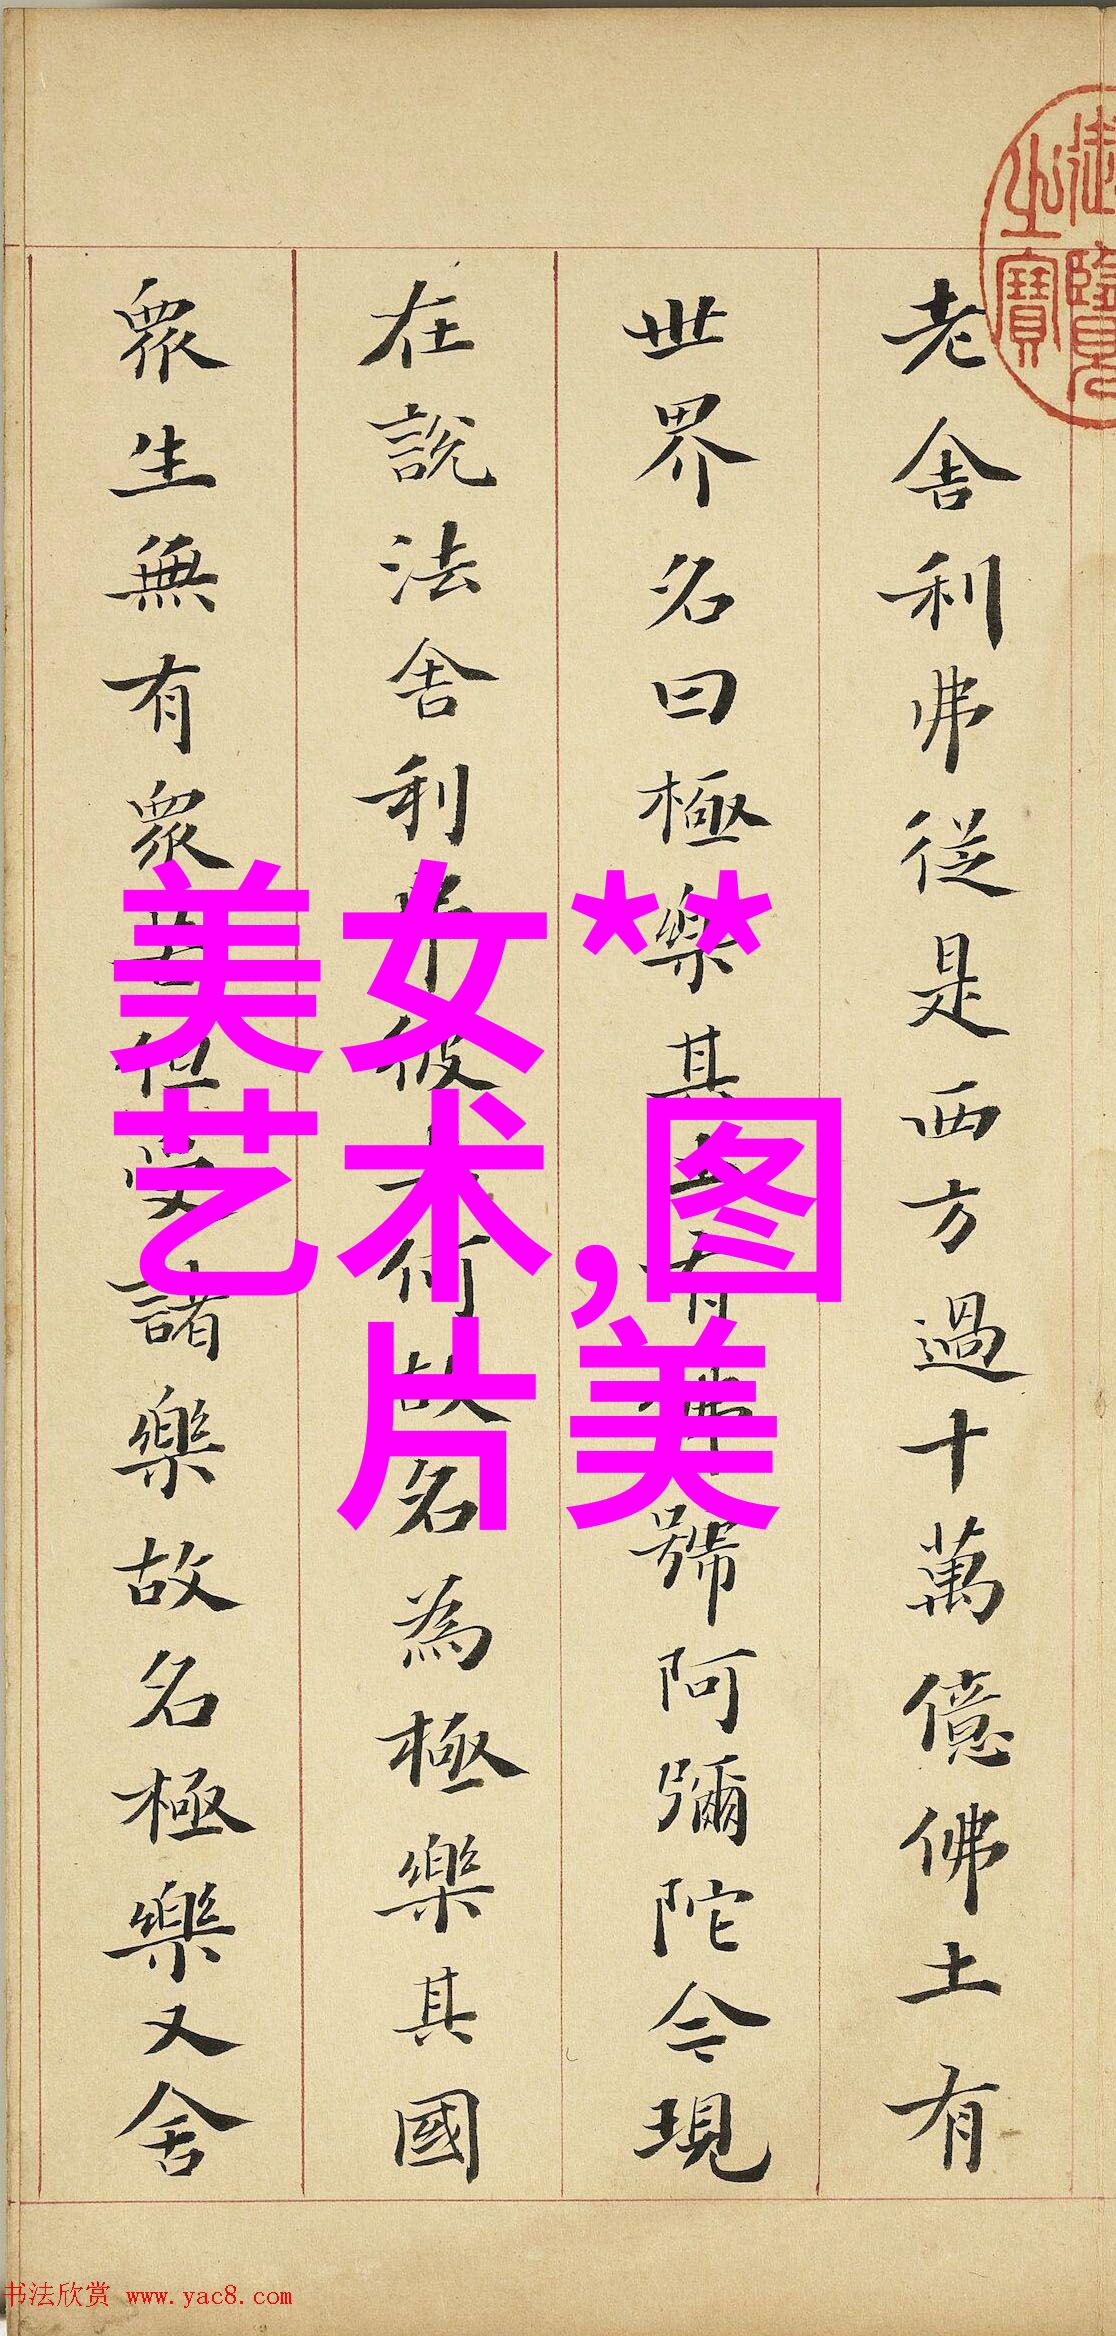 御覽之寶
老舍利弗從是西方過十萬億佛土有
世界名曰極樂其土有佛號阿彌陀今現
在說法舍利弗彼土何故名為極樂其國
眾生無有眾苦但受諸樂故名極樂又舍
美女**
艺术,图
片美
书法欣赏 www.yac8.com